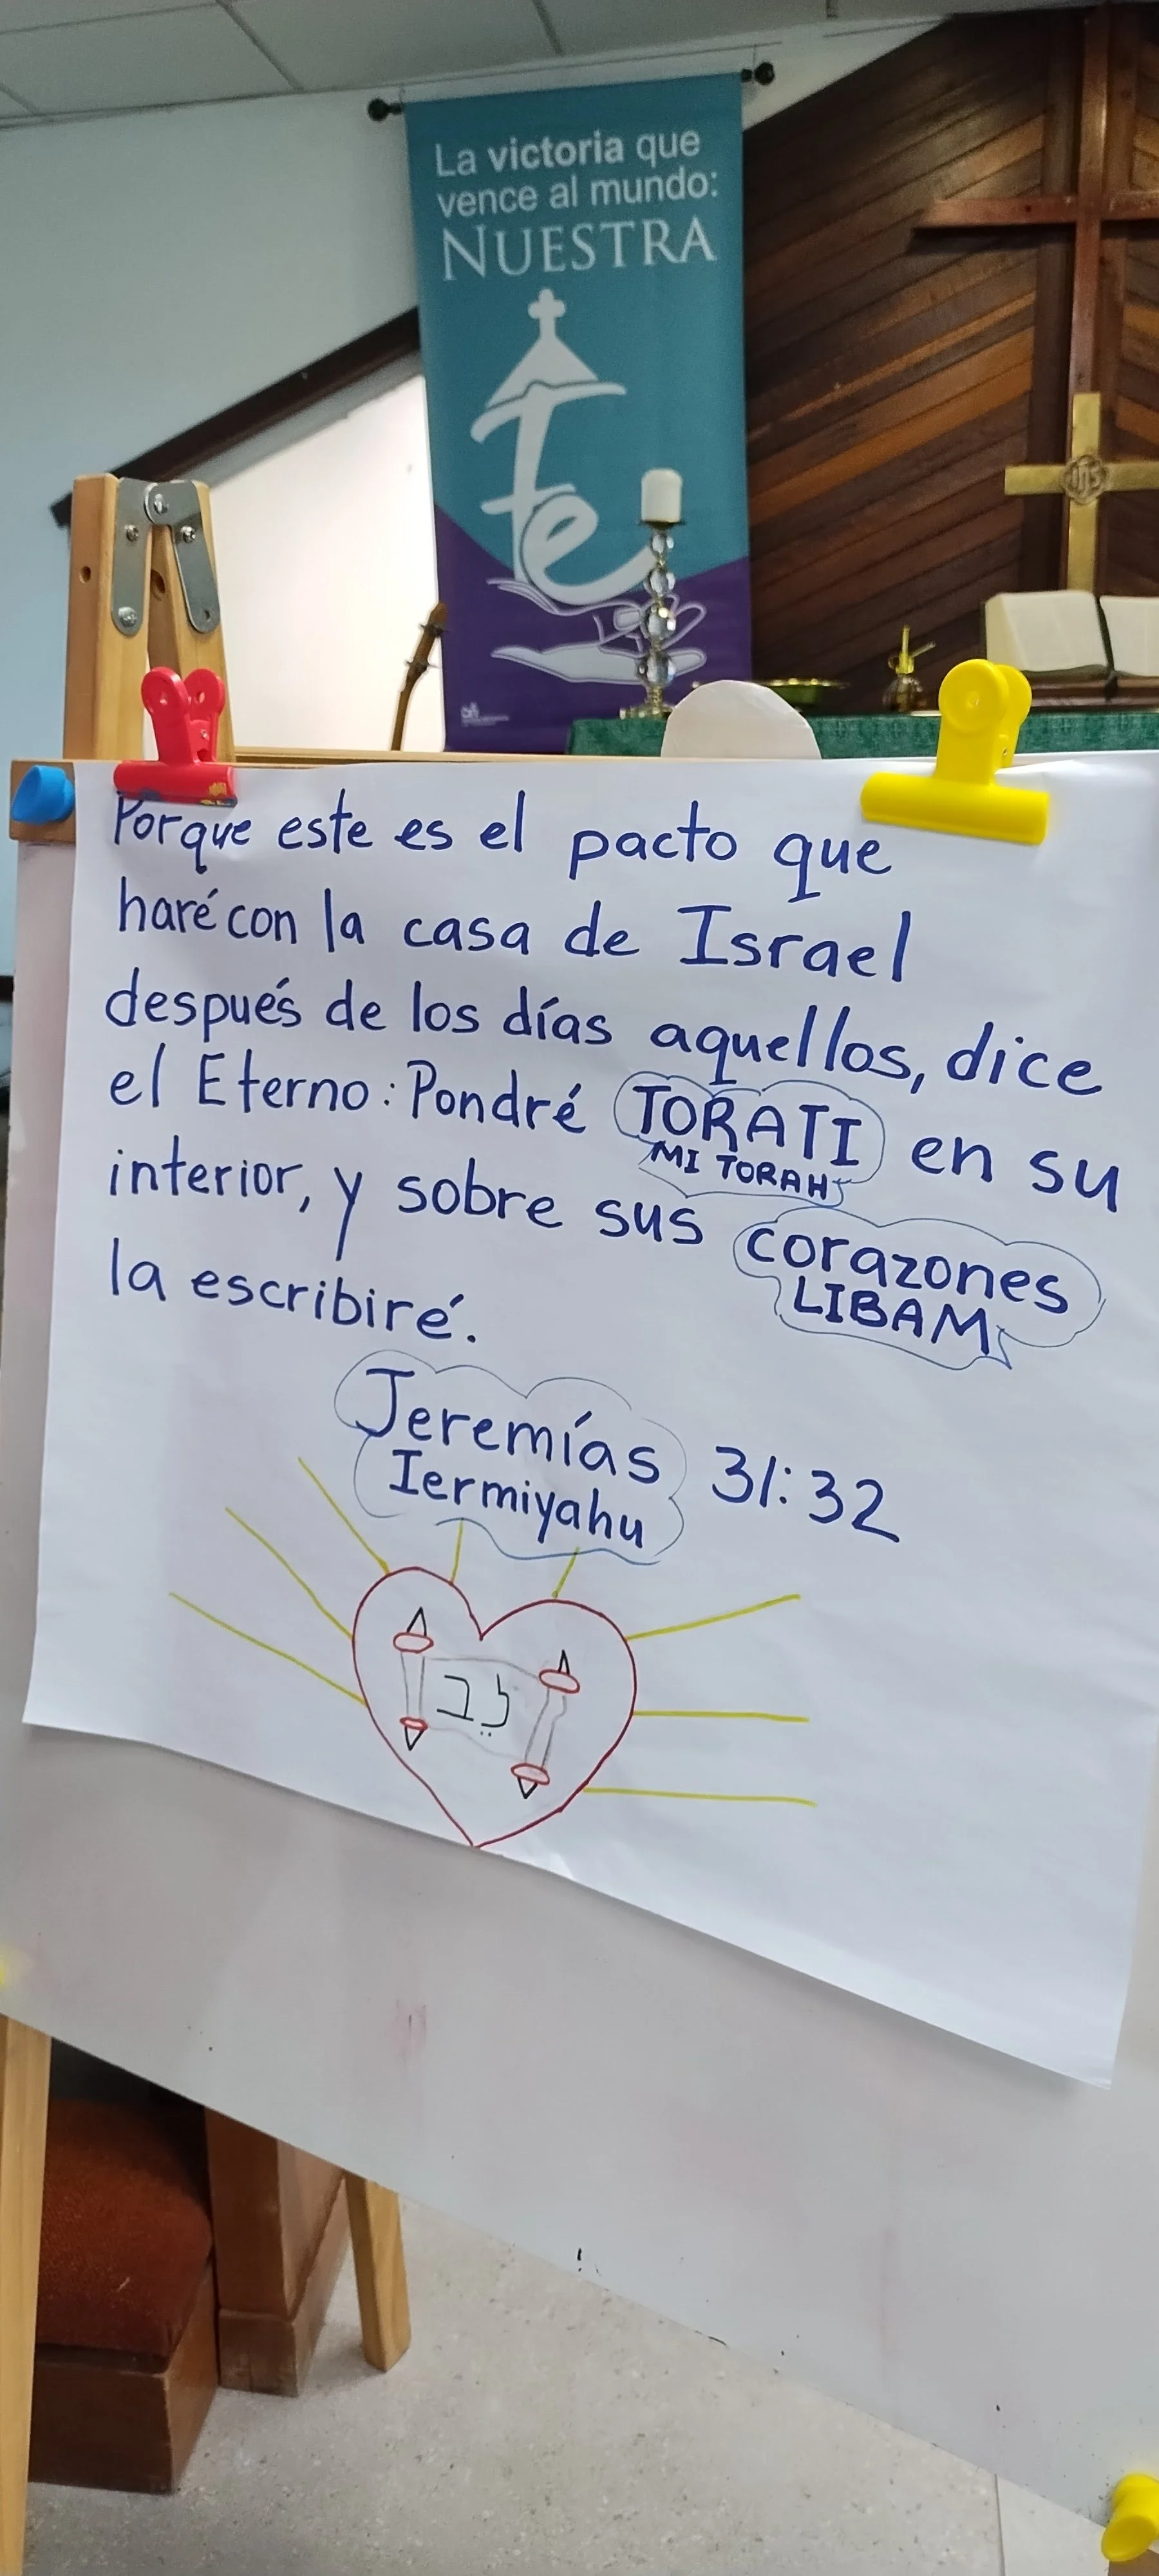 La victoria que
vence al mundo:
NUESTRA
Fe
IHS
Porque este es el pacto que
haré con la casa de Israel
después de los días aquellos, dice
el Eterno: Pondré TORATI en su
MI TORAH
interior, y sobre sus corazones
LIBAM
la escribiré.
Jeremías 31:32
Iermiyahu
לֵב